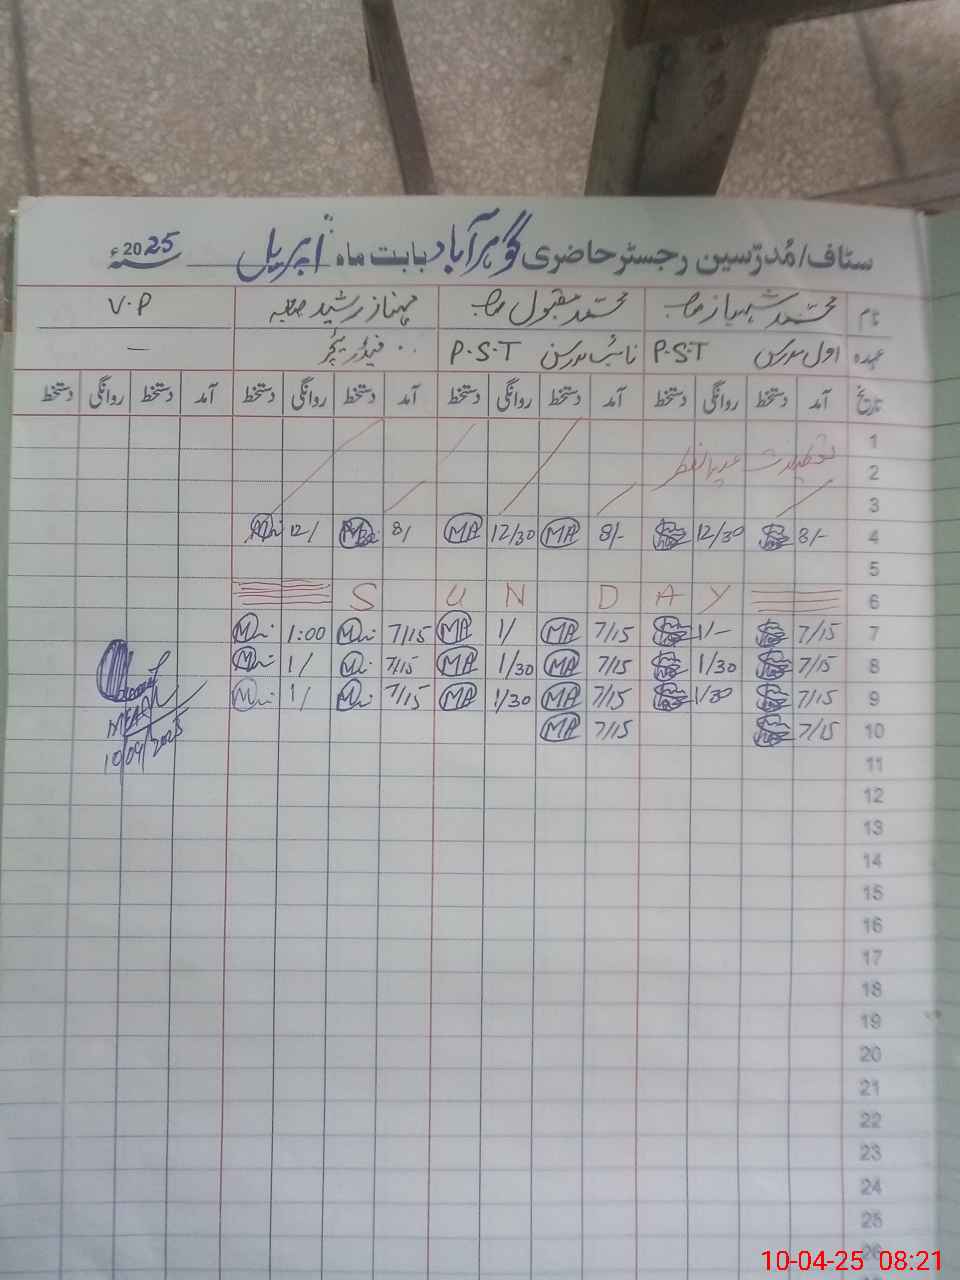 سٹاف/مُدرّسین رجسٹر حاضری گوہرآباد بابت ماہ اپریل 2025ء
نام محمد شہباز صاحب محمد مقبول صاحب مہناز رشید صاحبہ V.P
عہدہ اول مدرس P.S.T نائب مدرس P.S.T فیڈر ٹیچر —
تاریخ آمد دستخط روانگی دستخط آمد دستخط روانگی دستخط آمد دستخط روانگی دستخط آمد دستخط روانگی دستخط
1
2 تعطیلات عید الفطر
3
4 8/- 12/30 8/- MA 12/30 MA 8/ 12/
5
6 S U N D A Y
7 7/15 1/- 7/15 MA 1/ MA 7/15 1:00
8 7/15 1/30 7/15 MA 1/30 MA 7/15 1/
9 7/15 1/30 7/15 MA 1/30 MA 7/15 1/
10 7/15 7/15 MA
10/04/2025
11
12
13
14
15
16
17
18
19
20
21
22
23
24
25
26
10-04-25 08:21